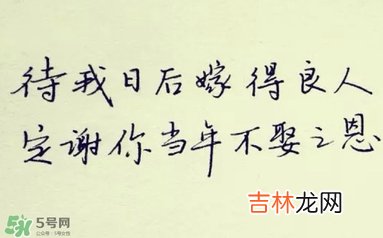 待我日后嫁得良人
定谢你当年不娶之恩
5号网
吉林龙网